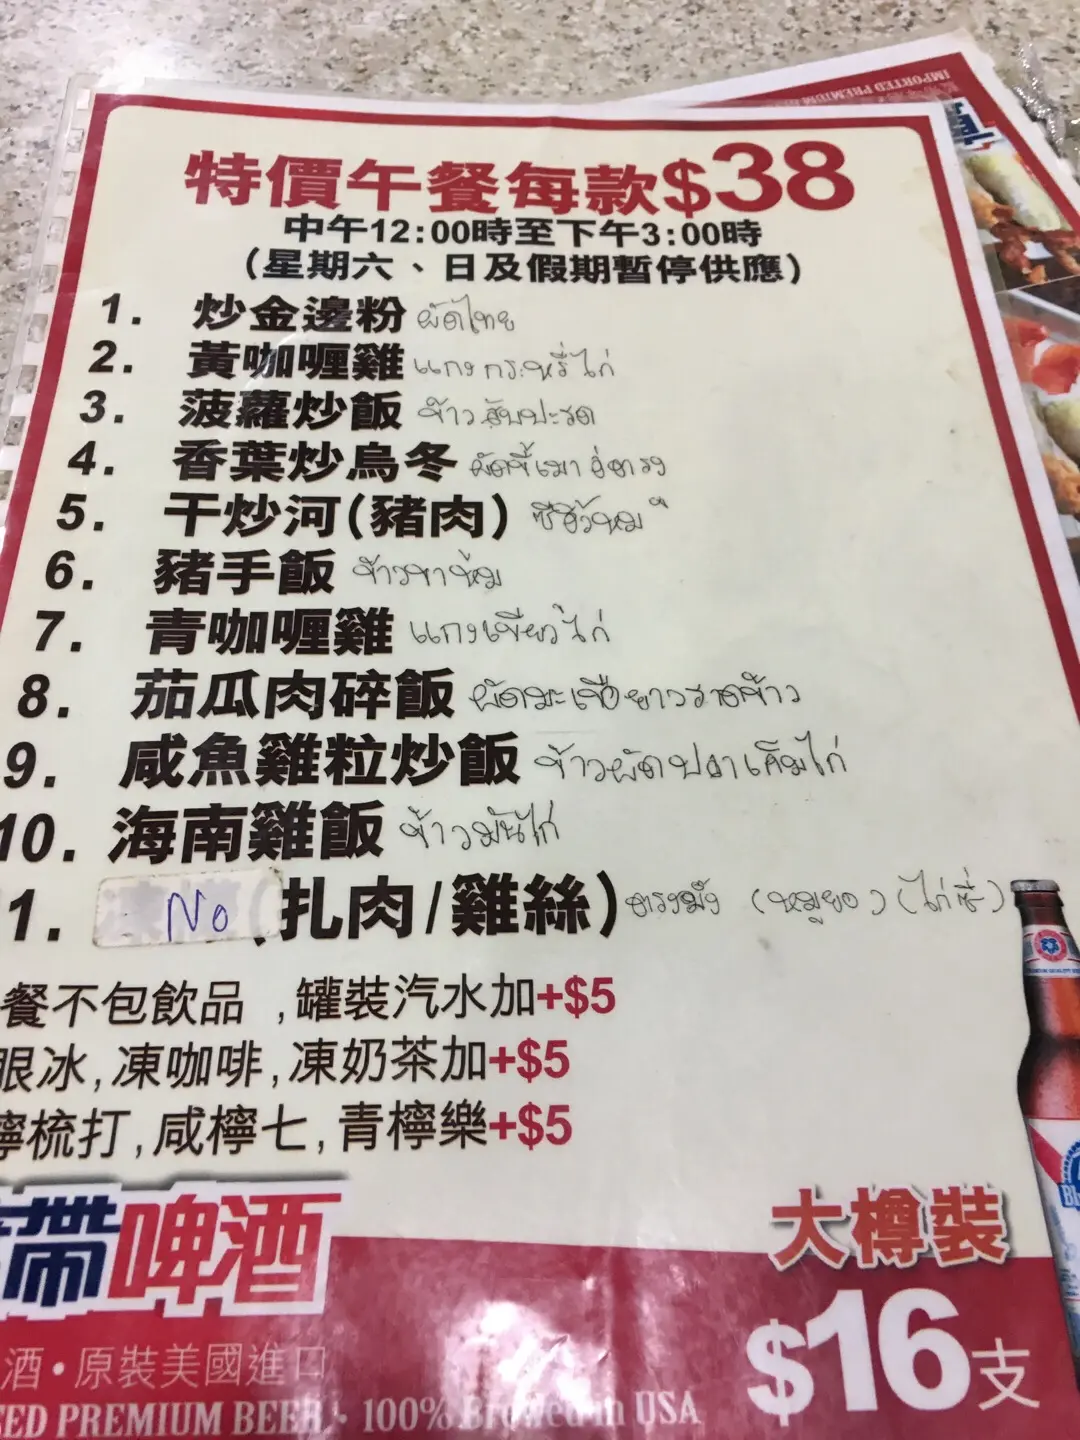 IMPORTED PREMIUM
特價午餐每款$38
中午12:00時至下午3:00時
(星期六、日及假期暫停供應)
1. 炒金邊粉 ผัดไทย
2. 黃咖喱雞 แกงกระหรี่ไก่
3. 菠蘿炒飯 ข้าวสับปะรด
4. 香葉炒烏冬 ผัดขี้เมา
5. 干炒河(豬肉) ซีอิ้วหมู
6. 豬手飯 ข้าวขาหมู
7. 青咖喱雞 แกงเขียวไก่
8. 茄瓜肉碎飯 ผัดมะเขือยาวราดข้าว
9. 咸魚雞粒炒飯 ข้าวผัดปลาเค็มไก่
10. 海南雞飯 ข้าวมันไก่
1. No (扎肉/雞絲) (หมูยอ) (ไก่ซี่)
餐不包飲品 ,罐裝汽水加+$5
眼冰,凍咖啡,凍奶茶加+$5
檸梳打,咸檸七,青檸樂+$5
帶啤酒
大樽裝
$16支
酒•原裝美國進口
ED PREMIUM BEER • 100% Brewed in USA